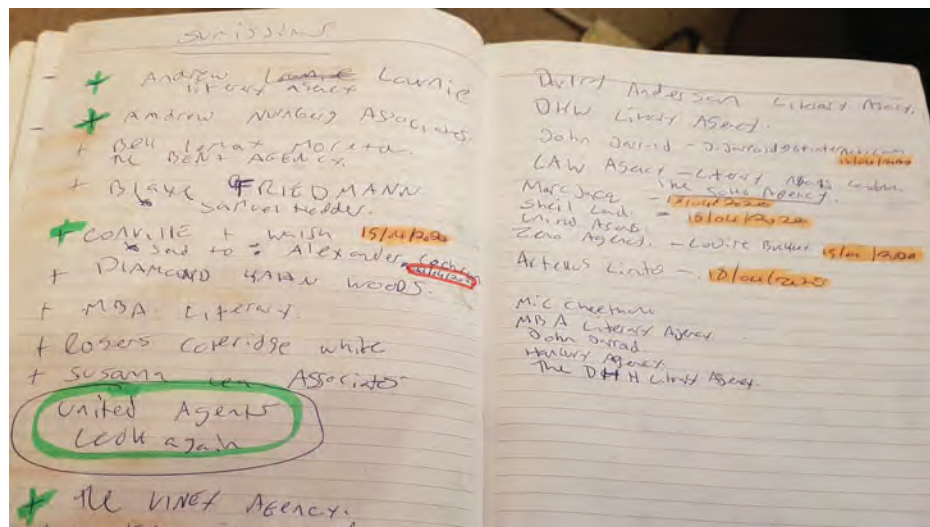 sumissims
+ Andrew Lownie
literary Agency
+ Andrew Nurnberg Associates.
+ Bell Lomax Moreton
The BENT AGENCY.
+ Blake FRIEDMANN
Samuel Hodder.
+ CONVILLE + Walsh 15/04/2020
* Send to : Alexander
+ DIAMOND KAHN WOODS.
+ MBA Literary.
+ Rogers coleridge white
+ Susanna Lea Associates
United Agents
Look again
+ The VINEY AGENCY.
Darley Anderson Literary Agency.
DHW Literary Agency.
John Jarrold -
15/04/2020
LAW Agency - Literary Agents London
The Soho Agency.
Marc Jacq - 15/04/2020
Sheil Land. - 15/04/2020
United Agents
Zeno Agency. - Louise Buckley 15/04/2020
Artellus Limited - 18/04/2020
Mic Cheetham
MBA Literary Agency
John Jarrold
Hanbury Agency.
The DHH Literary Agency.